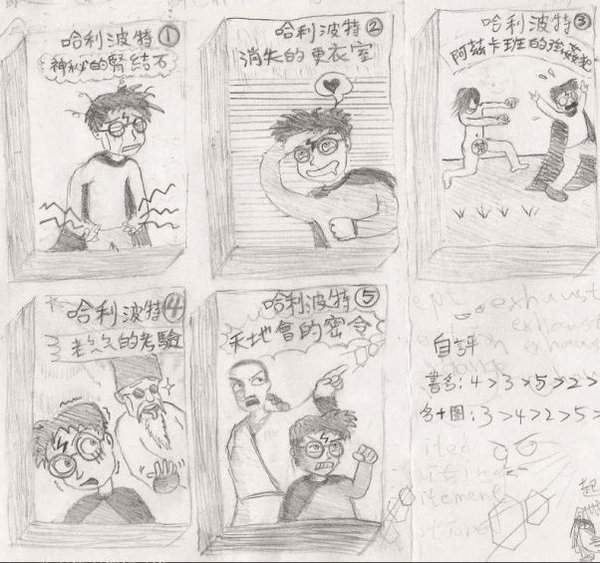 哈利波特①
神秘的腎結石
哈利波特②
消失的更衣室
哈利波特③
阿茲卡班的強姦犯
哈利波特④
的考驗
哈利波特⑤
天地會的密令
exhaust
自評
書名:4>3>5>2>
名+圖:3>4>2>5>
ited
itement
起